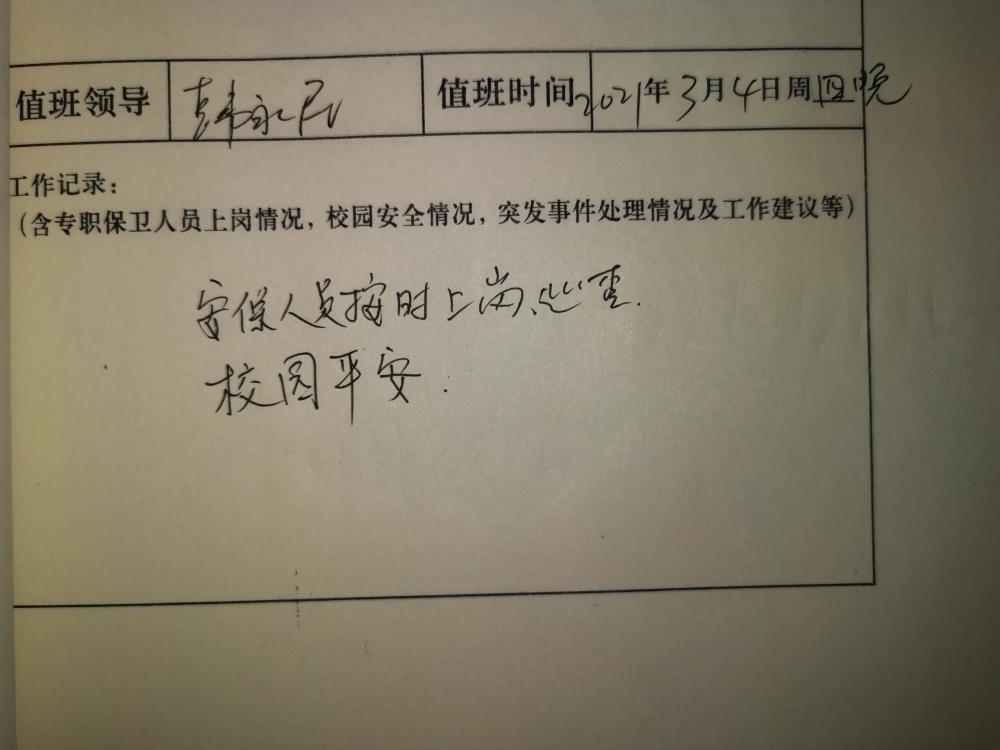 值班领导 韩永民 值班时间 2021年3月4日周四晚
工作记录：
（含专职保卫人员上岗情况，校园安全情况，突发事件处理情况及工作建议等）
安保人员按时上岗、巡查.
校园平安.